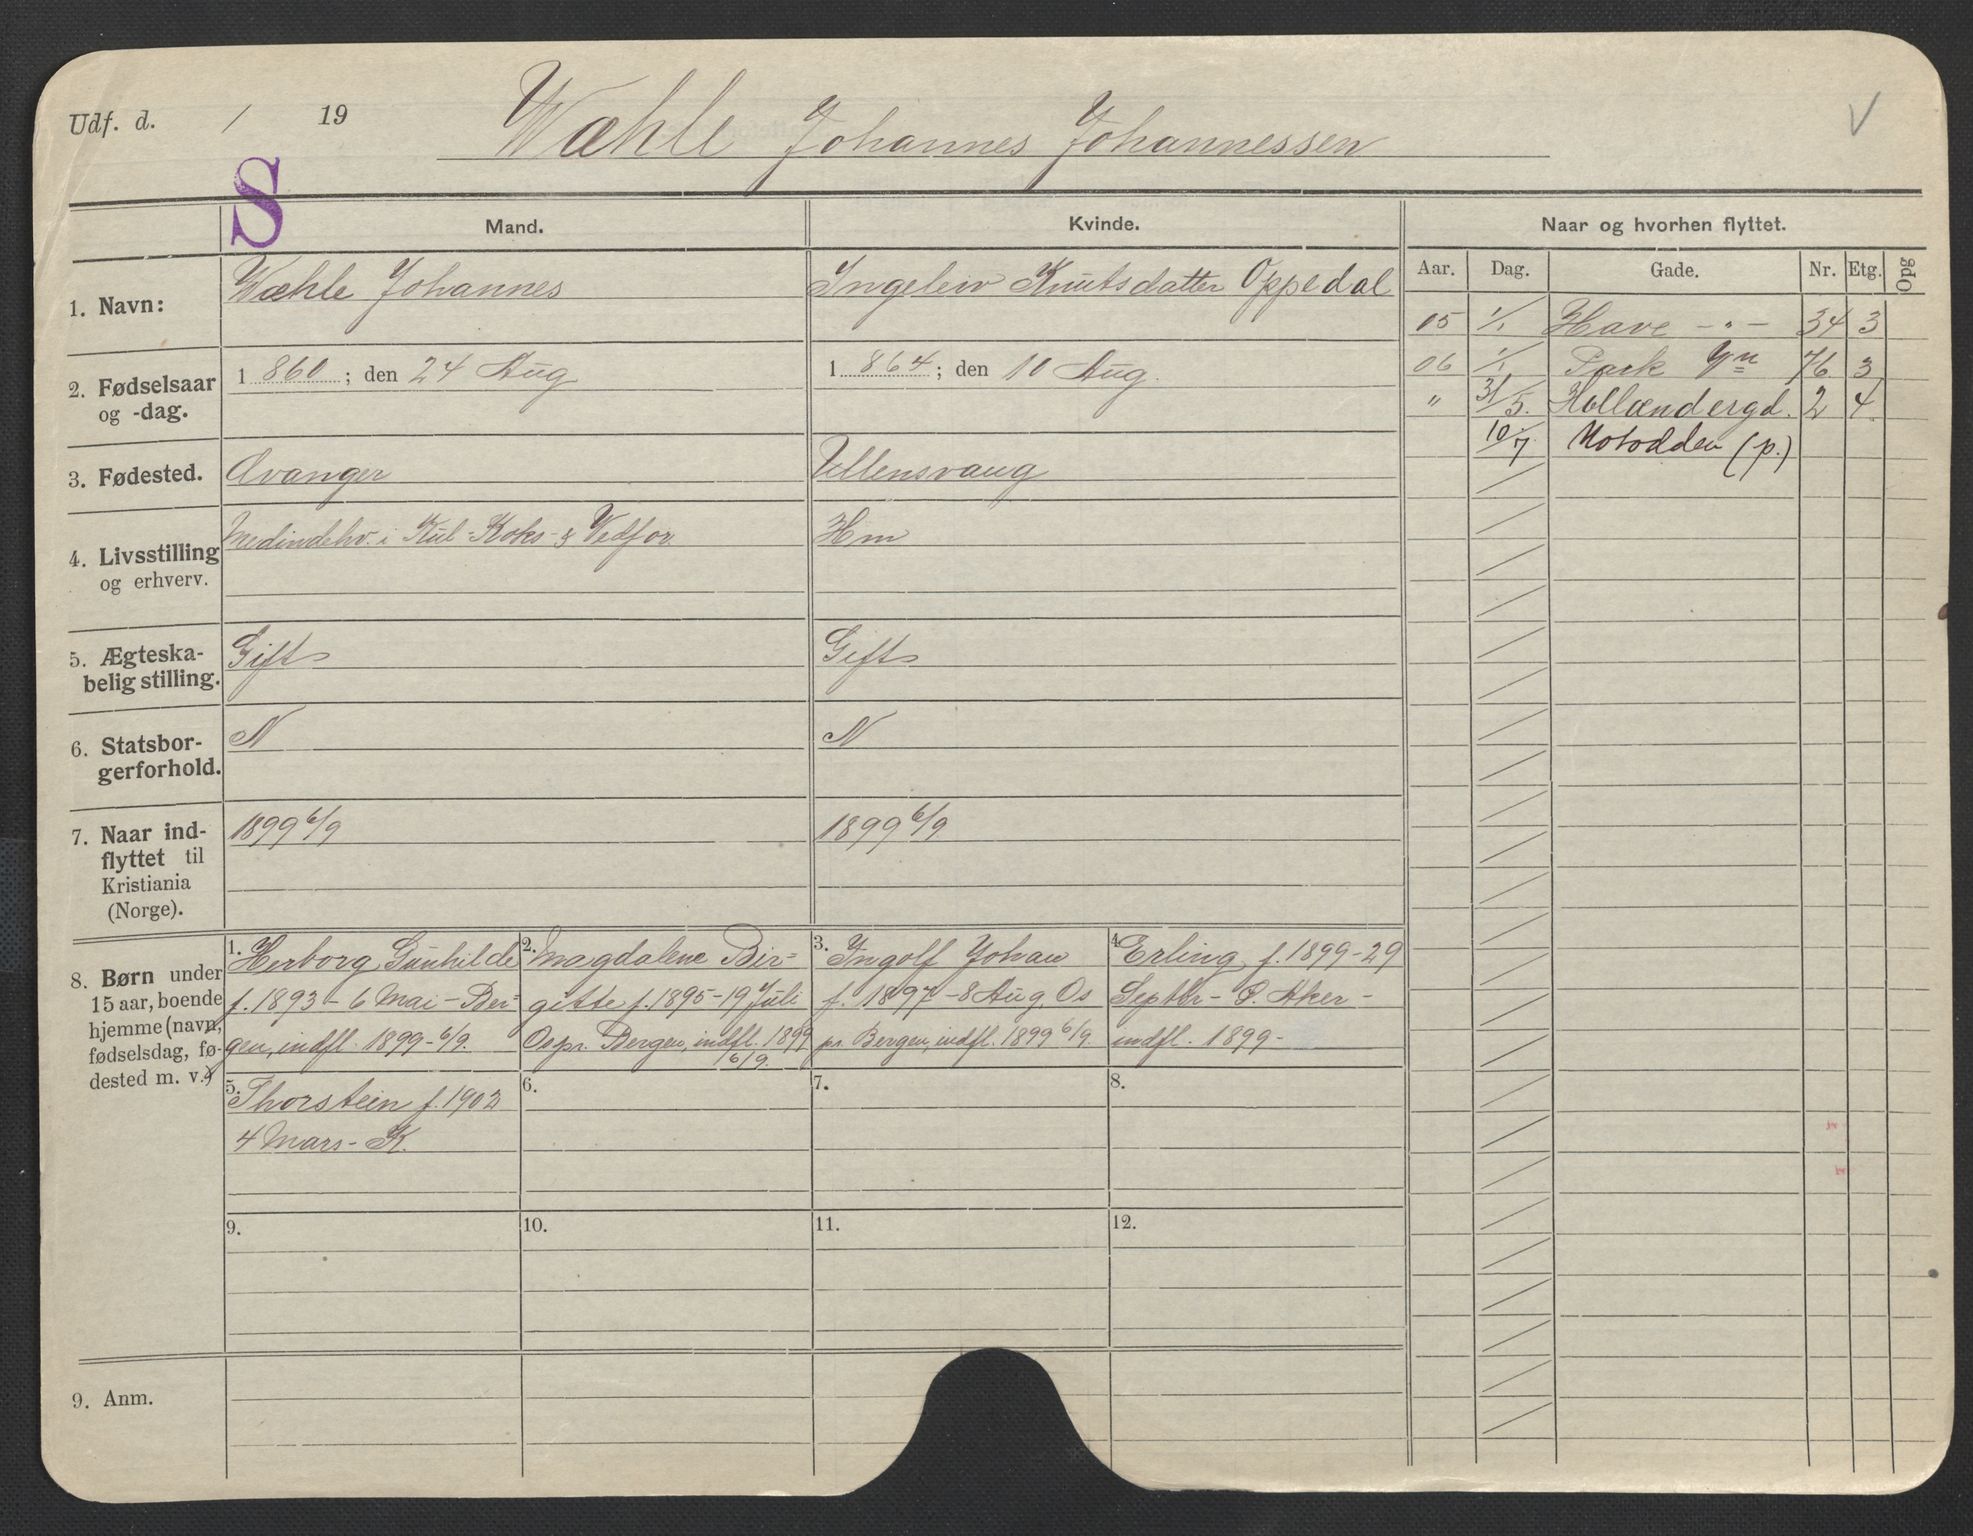 Udf. d. / 19
Wæhle Johannes Johannessen
V
S
Mand. Kvinde. Naar og hvorhen flyttet.
Aar. Dag. Gade. Nr. Etg. Opg
1. Navn: Wæhle Johannes Ingeleiv Knutsdatter Oppedal
05 1/1 Have - " - 34 3
2. Fødselsaar og -dag. 1 860 ; den 24 Aug 1 864 ; den 10 Aug.
06 1/1 Park Vn 76 3
" 31/5. Hollændergd. 2 4
10/7 Notodden (p.)
3. Fødested. Avanger Ullensvang
4. Livsstilling og erhverv. Medindehv. i Kul- Koks- & Vedfor. Hm
5. Ægteska-
belig stilling. Gift Gift
6. Statsbor-
gerforhold. N N
7. Naar ind-
flyttet til
Kristiania
(Norge).
1899 6/9 1899 6/9
8. Børn under
15 aar, boende
hjemme (navn,
fødselsdag, fø-
dested m. v.)
1. Herborg Gunhilde
f. 1893 - 6 Mai - Ber-
gen, indfl. 1899 - 6/9.
2. Magdalene Bir-
gitte f. 1895 - 19 Juli
Ospr. Bergen, indfl. 1899
6/9.
3. Ingolf Johan
f. 1897 - 8 Aug, Os
pr. Bergen, indfl. 1899 6/9.
4. Erling f. 1899 - 29
Septbr - Ø. Aker -
indfl. 1899 -
5. Thorstein f. 1902
4 Mars - K.
6.
7.
8.
9.
10.
11.
12.
9. Anm.